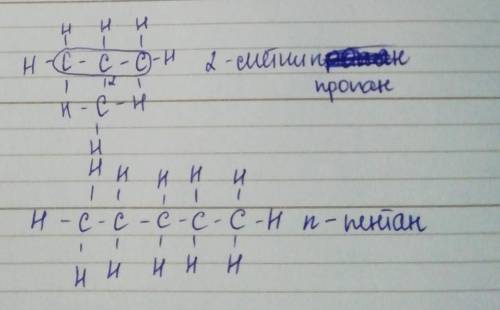 H H H
H - C - C - C - H 2-метил
12 пропан
H - C - H
H
H H H H H
H - C - C - C - C - C - H n-пентан
H H H H H